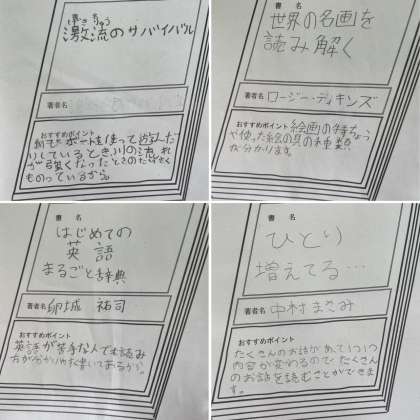 げきりゅう
激流のサバイバル
著者名
おすすめポイント
ボートを使って遊んだ
りしているとき川の流れ
が強くなったときの
ものっているから。
書 名
世界の名画を
読み解く
著者名 ロージー・ディキンズ
おすすめポイント 絵画の特ちょう
や使った絵の具の種類
が分かります。
書 名
はじめての
英語
まるごと辞典
著者名 卯城 祐司
おすすめポイント
英語が苦手な人でも読み
方が分かりやすく書いてあるから。
書 名
ひとり
増えてる…
著者名 中村まさみ
おすすめポイント
たくさんのお話があって1つ1つ
内容が変わるのでたくさん
のお話を読むことができま
す。